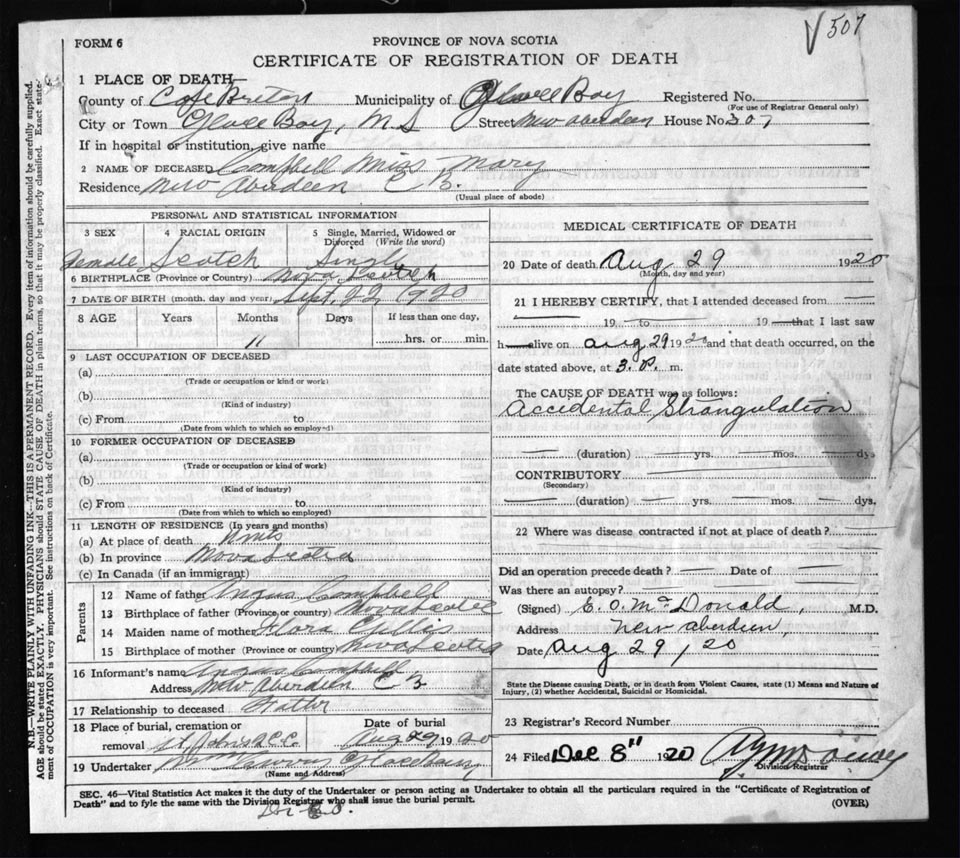 507
FORM 6
PROVINCE OF NOVA SCOTIA
CERTIFICATE OF REGISTRATION OF DEATH
N.B.—WRITE PLAINLY WITH UNFADING INK—THIS IS A PERMANENT RECORD. Every item of information should be carefully supplied.
AGE should be stated EXACTLY. PHYSICIANS should STATE CAUSE OF DEATH in plain terms, so that it may be properly classified. Exact state-
ment of OCCUPATION is very important. See instructions on back of Certificate.
1 PLACE OF DEATH
County of Cape Breton Municipality of Glace Bay Registered No.
(For use of Registrar General only)
City or Town Glace Bay, N.S Street New Aberdeen House No 307
If in hospital or institution, give name
2 NAME OF DECEASED Campbell Miss Mary
Residence New Aberdeen C B.
(Usual place of abode)
PERSONAL AND STATISTICAL INFORMATION
3 SEX 4 RACIAL ORIGIN 5 Single, Married, Widowed or Divorced (Write the word)
Female Scotch Single
6 BIRTHPLACE (Province or Country) Nova Scotia
7 DATE OF BIRTH (month, day and year) Sept 22 1920
8 AGE Years Months Days If less than one day,
11 hrs. or min.
9 LAST OCCUPATION OF DECEASED
(a)
(Trade or occupation or kind or work)
(b)
(Kind of industry)
(c) From to
(Date from which to which so employed)
10 FORMER OCCUPATION OF DECEASED
(a)
(Trade or occupation or kind of work)
(b)
(Kind of industry)
(c) From to
(Date from which to which so employed)
11 LENGTH OF RESIDENCE (In years and months)
(a) At place of death
(b) In province Nova Scotia
(c) In Canada (if an immigrant)
Parents
12 Name of father Angus Campbell
13 Birthplace of father (Province or country) Nova Scotia
14 Maiden name of mother Flora
15 Birthplace of mother (Province or country) Nova Scotia
16 Informant's name Angus Campbell
Address New Aberdeen C B
17 Relationship to deceased Father
18 Place of burial, cremation or removal Date of burial
St Johns Aug 29 1920
19 Undertaker Glace Bay
(Name and Address)
MEDICAL CERTIFICATE OF DEATH
20 Date of death Aug 29 1920
(Month, day and year)
21 I HEREBY CERTIFY, that I attended deceased from
19 to 19 that I last saw
h alive on Aug 29 1920 and that death occurred, on the
date stated above, at 3. P. m.
The CAUSE OF DEATH was as follows:
Accidental Strangulation
(duration) yrs. mos. dys
CONTRIBUTORY
(Secondary)
(duration) yrs. mos. dys.
22 Where was disease contracted if not at place of death?
Did an operation precede death? Date of
Was there an autopsy?
(Signed) E. O. McDonald, M.D.
Address New Aberdeen,
Date Aug 29, 20
State the Disease causing Death, or in death from Violent Causes, state (1) Means and Nature of
Injury, (2) whether Accidental, Suicidal or Homicidal.
23 Registrar's Record Number
24 Filed Dec 8" 1920
Division Registrar
SEC. 46—Vital Statistics Act makes it the duty of the Undertaker or person acting as Undertaker to obtain all the particulars required in the "Certificate of Registration of
Death" and to fyle the same with the Division Registrar who shall issue the burial permit.
(OVER)